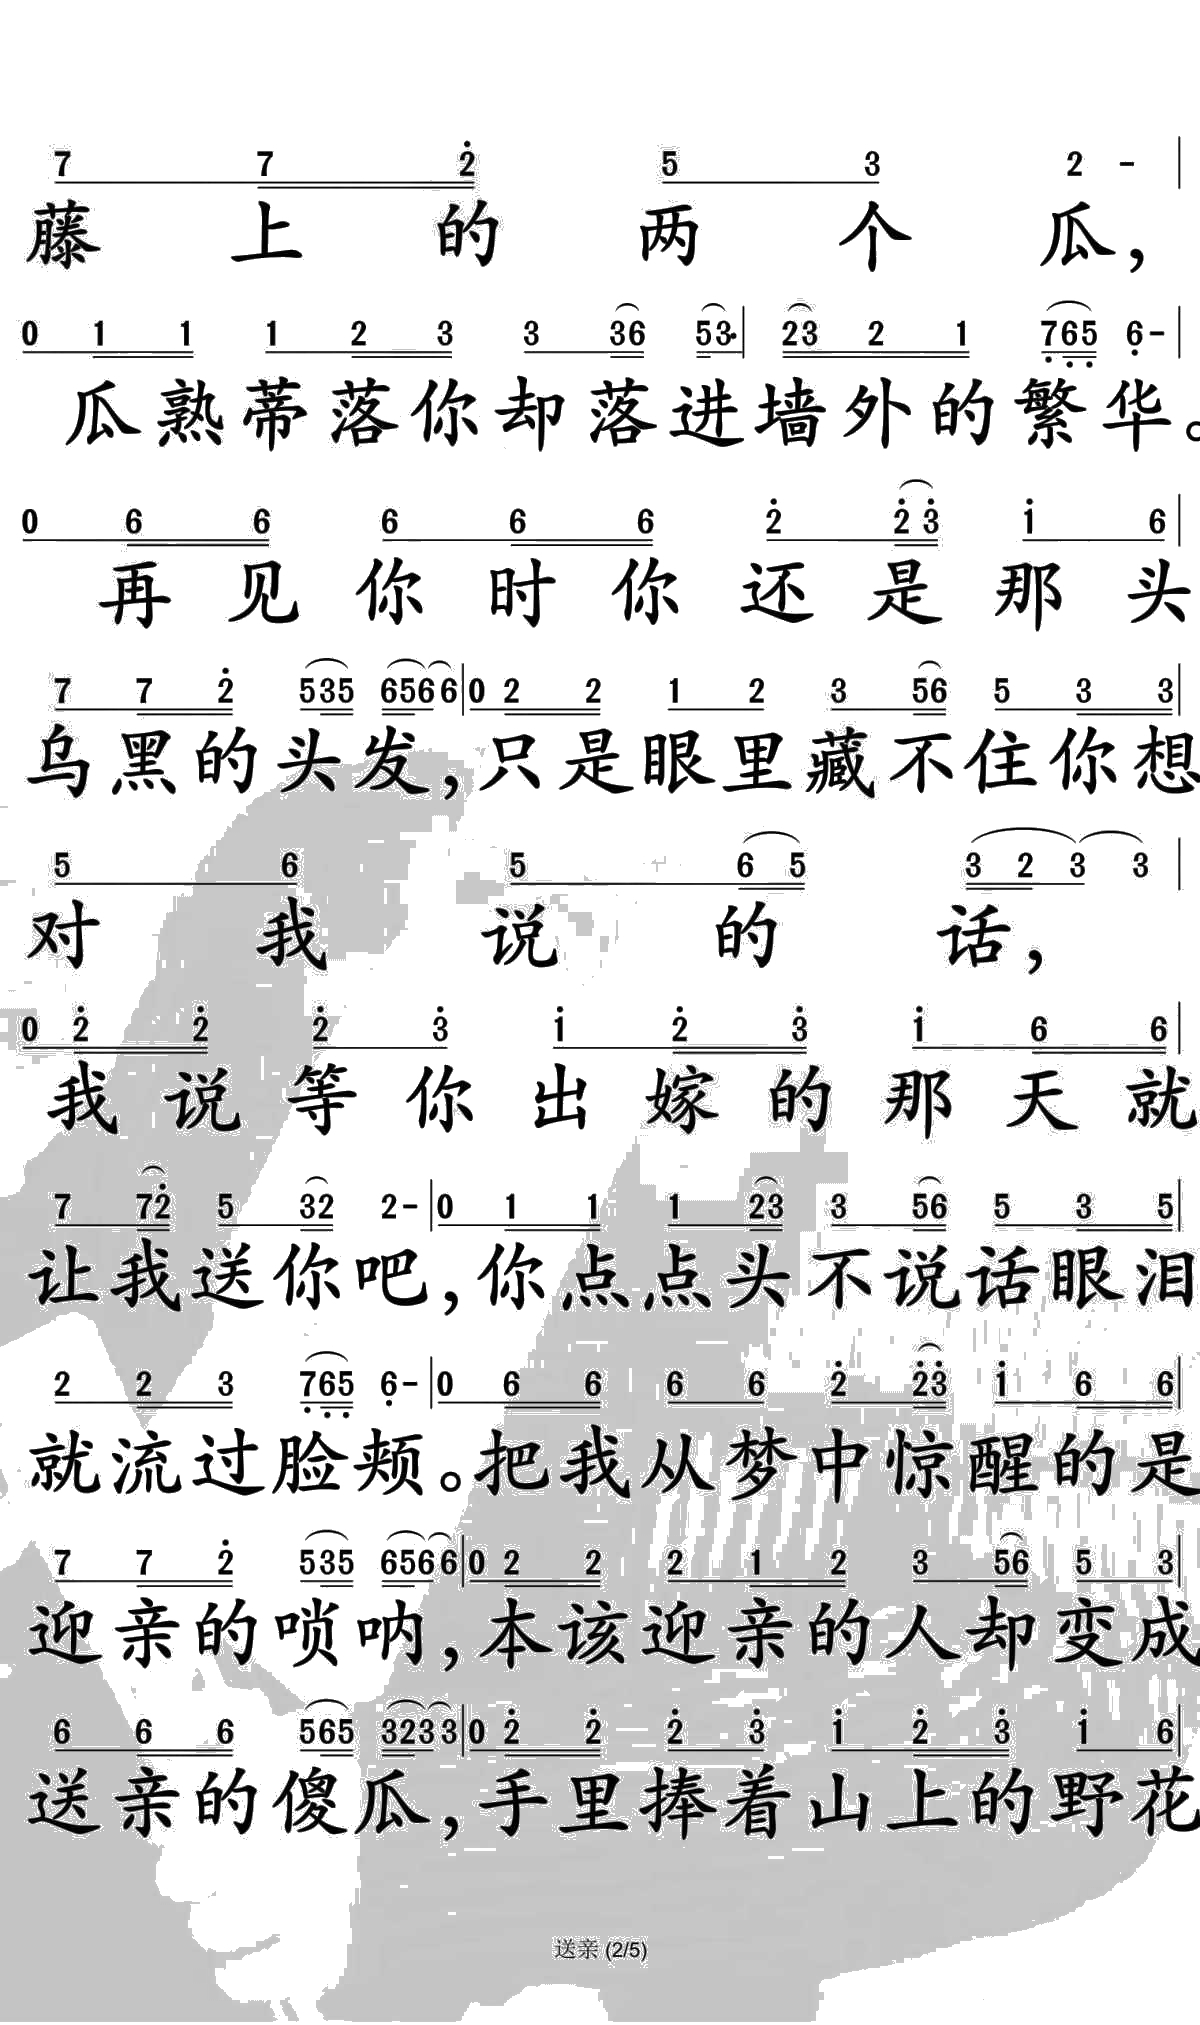 7 7 2 5 3 2 -
藤上的两个瓜，
0 1 1 1 2 3 3 36 53· 23 2 1 765 6-
瓜熟蒂落你却落进墙外的繁华。
0 6 6 6 6 6 2 23 1 6
再见你时你还是那头
7 7 2 535 6566 0 2 2 1 2 3 56 5 3 3
乌黑的头发，只是眼里藏不住你想
5 6 5 6 5 3 2 3 3
对我说的话，
0 2 2 2 3 1 2 3 1 6 6
我说等你出嫁的那天就
7 72 5 32 2- 0 1 1 1 23 3 56 5 3 5
让我送你吧，你点点头不说话眼泪
2 2 3 765 6- 0 6 6 6 6 2 23 1 6 6
就流过脸颊。把我从梦中惊醒的是
7 7 2 535 6566 0 2 2 2 1 2 3 56 5 3
迎亲的唢呐，本该迎亲的人却变成
6 6 6 565 3233 0 2 2 2 3 1 2 3 1 6
送亲的傻瓜，手里捧着山上的野花
送亲 (2/5)